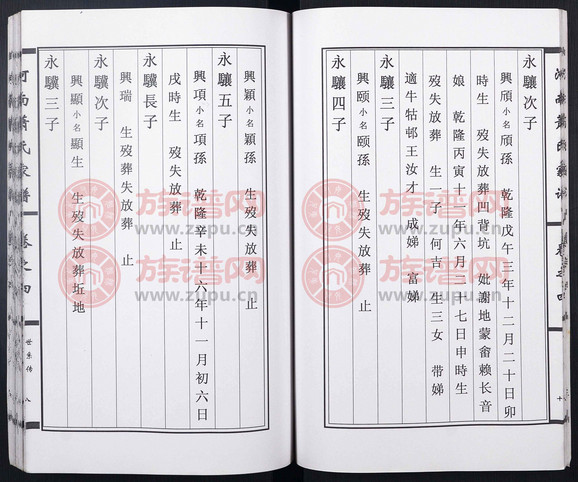 永驤次子
興頎小名頎孫 乾隆戊午三年十二月二十日卯
時生 歿失放葬凹背坑 妣謝地蒙畬賴长音
娘 乾隆丙寅十一年六月二十七日申時生
歿失放葬 生一子 何吉 生三女 带娣
適牛牯邨王汝才 成娣 富娣
永驤三子
興颐小名颐孫 生歿失放葬 止
永驤四子
興穎小名穎孫 生歿失放葬 止
永驤五子
興項小名項孫 乾隆辛未十六年十一月初六日
戌時生 歿失放葬 止
永驥長子
興瑞 生歿失放葬 止
永驥次子
興顯小名顯生 生歿失放葬坵地
永驥三子
河南萧氏家谱 卷之四 世系传 八
族谱网
www.zupu.cn
族谱网
www.zupu.cn
族谱网
www.zupu.cn
族谱网
www.zupu.cn